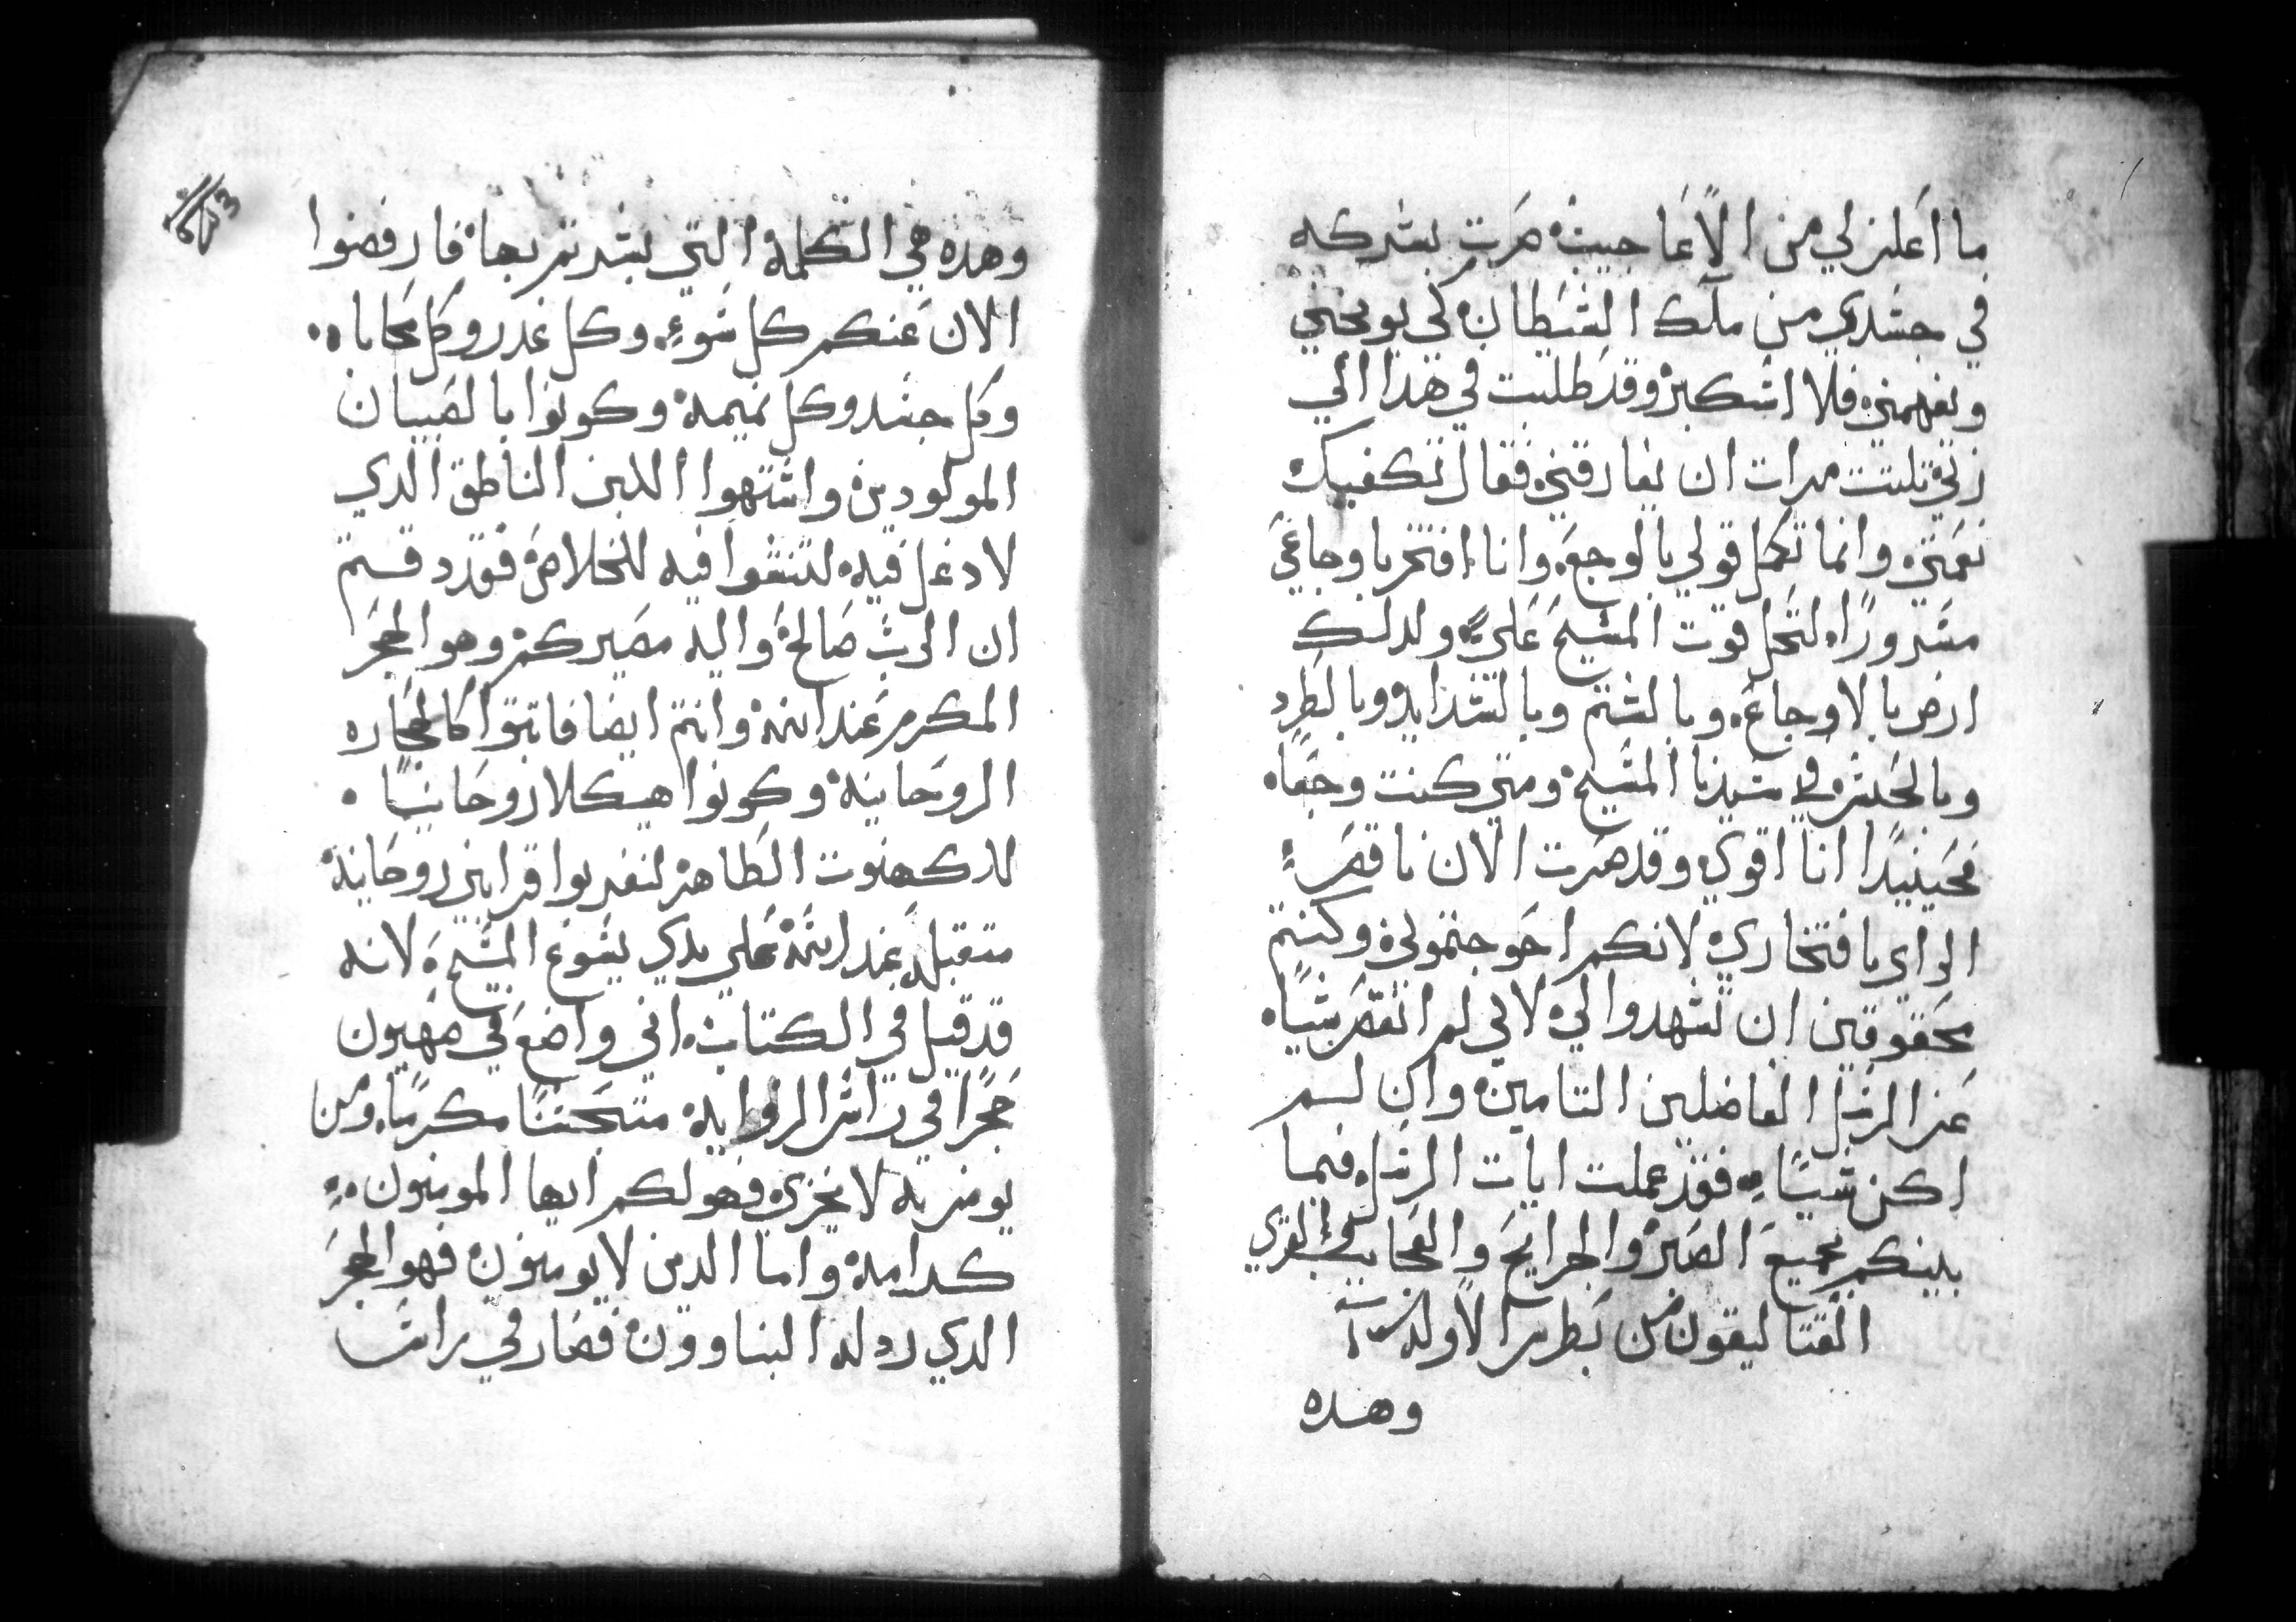 ما اعلن لي من الاعاجيب ضربت بشركه
في جسدي من ملك الشيطان كي يوبخني
ويفهمني فلا استكبر وقد طلبت في هذا الي
ربي تلتت مرات ان يفارقني فقال تكفيك
نعمتي وانما تكمل قولي بالوجع وانا افتخر باوجاعي
مسرورًا لتحل قوت المسيح علي ولدلك
ارضى بالاوجاع وبالشتم وبالشدايد وبالطرد
وبالحبس في سيدنا المسيح ومتي كنت وجعًا
فحينيدًا انا اقوي وقد صرت الان ناقص
الراي بافتخاري لانكم احوجتموني وكنتم
محقوقين ان تشهدوا لي لاني لم انقص شيًا
عن الرسل الفاضلين التامين وان لم
اكن شيًا فقد عملت ايات الرسل فيما
بينكم بجميع الصبر والجرايح والعجايب والقوي
القتاليقون من بطرس الاوله
وهده
وهده هي الكلمة التي بشرتم بها فارفضوا
الان عنكم كل سوء وكل غدر وكل محاباه
وكل حسد وكل نميمة وكونوا بالصبيان
المولودين واشتهوا اللبن الناطق الدي
لا دغل فيه لتنشوا فيه للخلاص فقد دقتم
ان الرب صالح واليه مصيركم وهو الحجر
المكرم عند الله وانتم ايضا فابتنوا كالحجاره
الروحانية وكونوا هيكلا روحانيًا
للكهنوت الطاهر لتقربوا قرابين روحانية
متقبله عند الله علي يدي يسوع المسيح لانه
قد قيل في الكتاب اني واضع في صهيون
حجرًا في راس الزوايه منتخبًا مكرمًا ومن
يومن به لا يخزي فهو لكم ايها المومنون
كرامة واما الدين لا يومنون فهو الحجر
الدي ردله البناوون فصار في راس